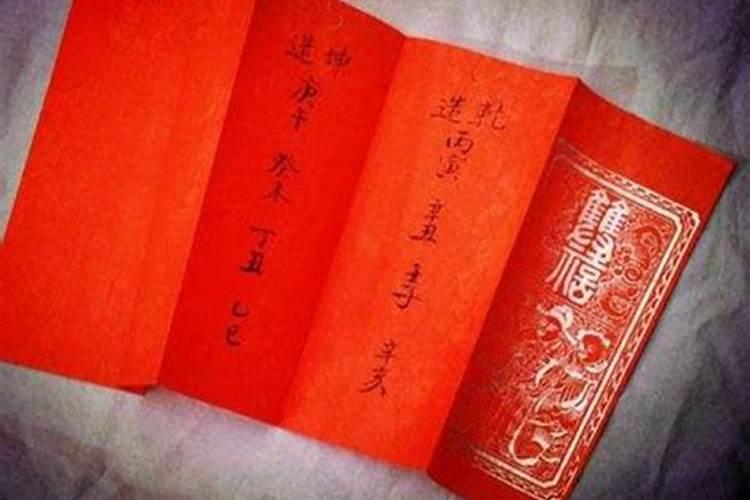 雙禧
乾造
丙寅
辛丑
壬子
辛亥
坤造
庚午
癸未
丁丑
乙巳